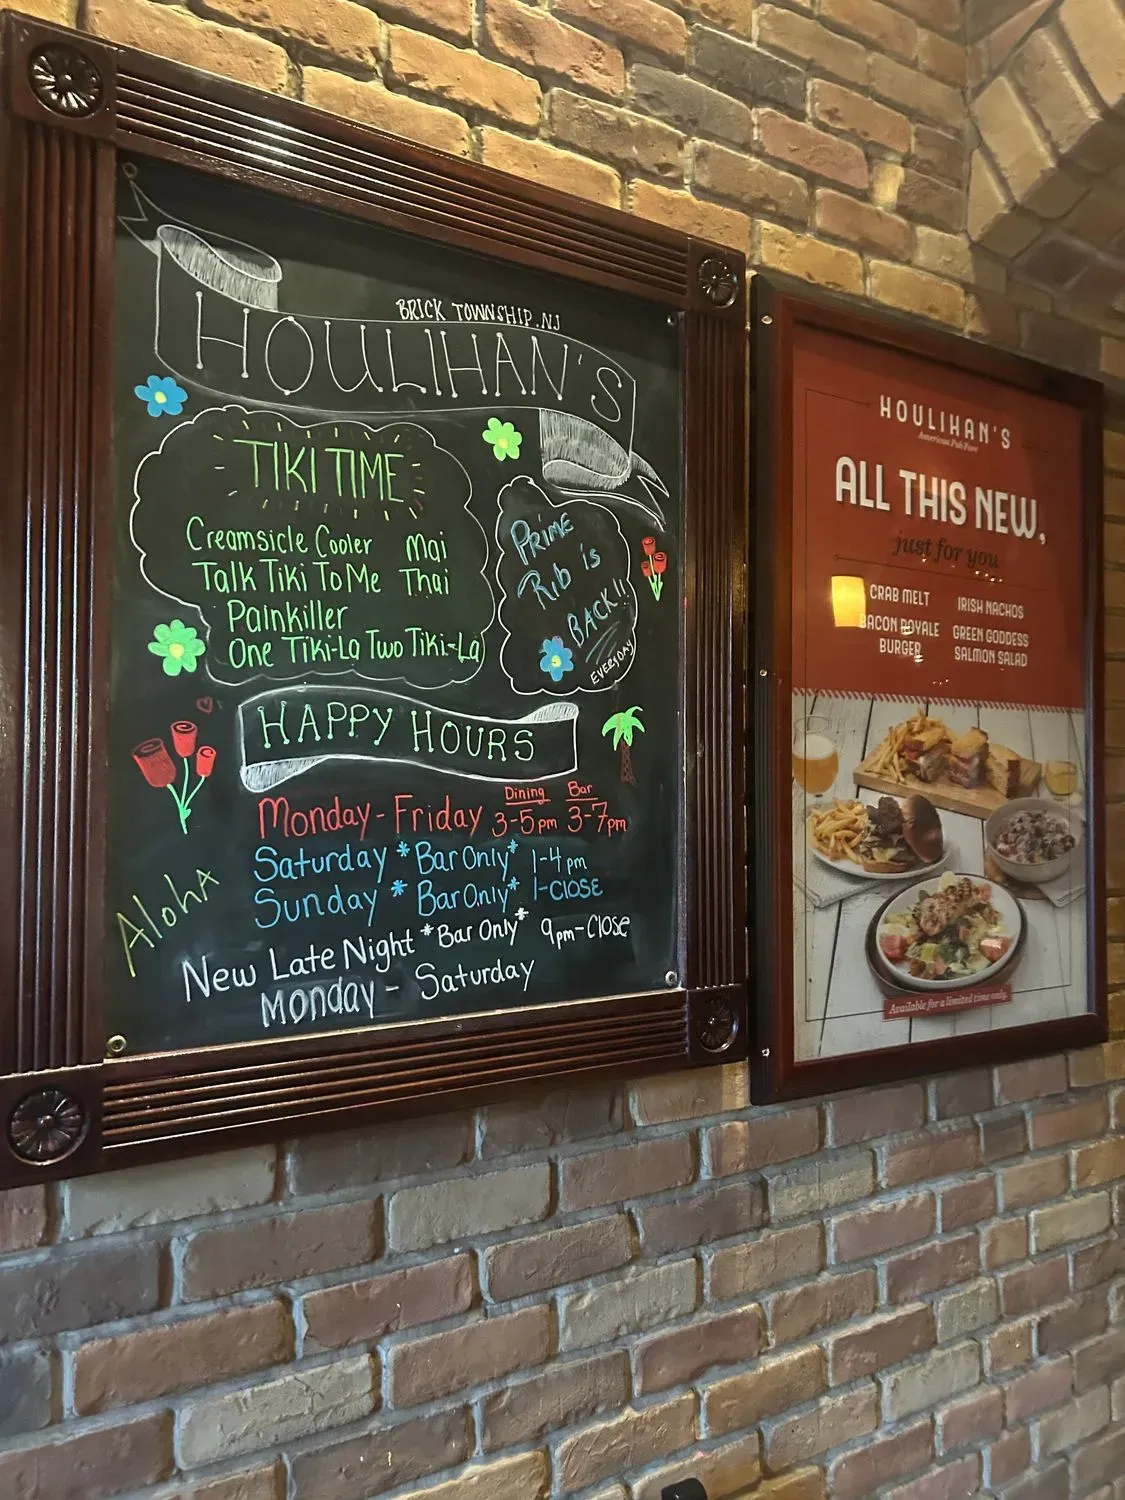 BRICK TOWNSHIP.NJ
HOULIHAN'S
TIKI TIME
Creamsicle Cooler Mai
Talk Tiki To Me Thai
Painkiller
One Tiki-La Two Tiki-La
PRIME
Rib is
BACK!!
EVERYDAY
HAPPY HOURS
Dining Bar
Monday-Friday 3-5pm 3-7pm
Saturday *Bar Only* 1-4pm
Sunday *Bar Only* 1-CLOSE
Aloha
New Late Night *Bar Only* 9pm-Close
Monday - Saturday
HOULIHAN'S
American Pub Fare
ALL THIS NEW,
just for you
CRAB MELT
BACON ROYALE
BURGER
IRISH NACHOS
GREEN GODDESS
SALMON SALAD
Available for a limited time only.